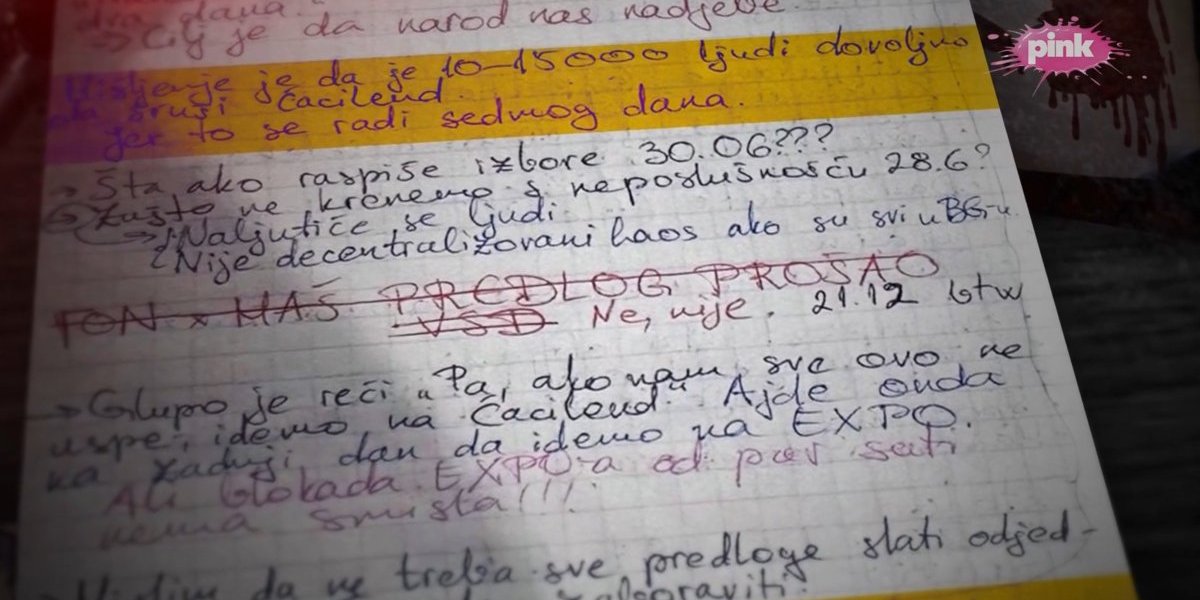 dva dana.
→ Cilj je da narod nas nadjebe.
pink
Mišljenje je da je 10-15000 ljudi dovoljno
da sruši Ćacilend.
jer to se radi sedmog dana.
→ Šta ako raspiše izbore 30.06???
Zašto ne krenemo s neposlušnošću 28.6?
→ Naljutiće se ljudi.
Nije decentralizovani haos ako su svi u BG-u.
FON x MAŠ PREDLOG PROŠAO
VSD Ne, nije. 21.12 btw
→ Glupo je reći "Pa, ako nam sve ovo ne
uspe, idemo na Ćacilend". Ajde onda
za zadnji dan da idemo na EXPO.
Ali blokada EXPO-a od par sati
nema smisla!!!
da ne treba sve predloge slati odjed-